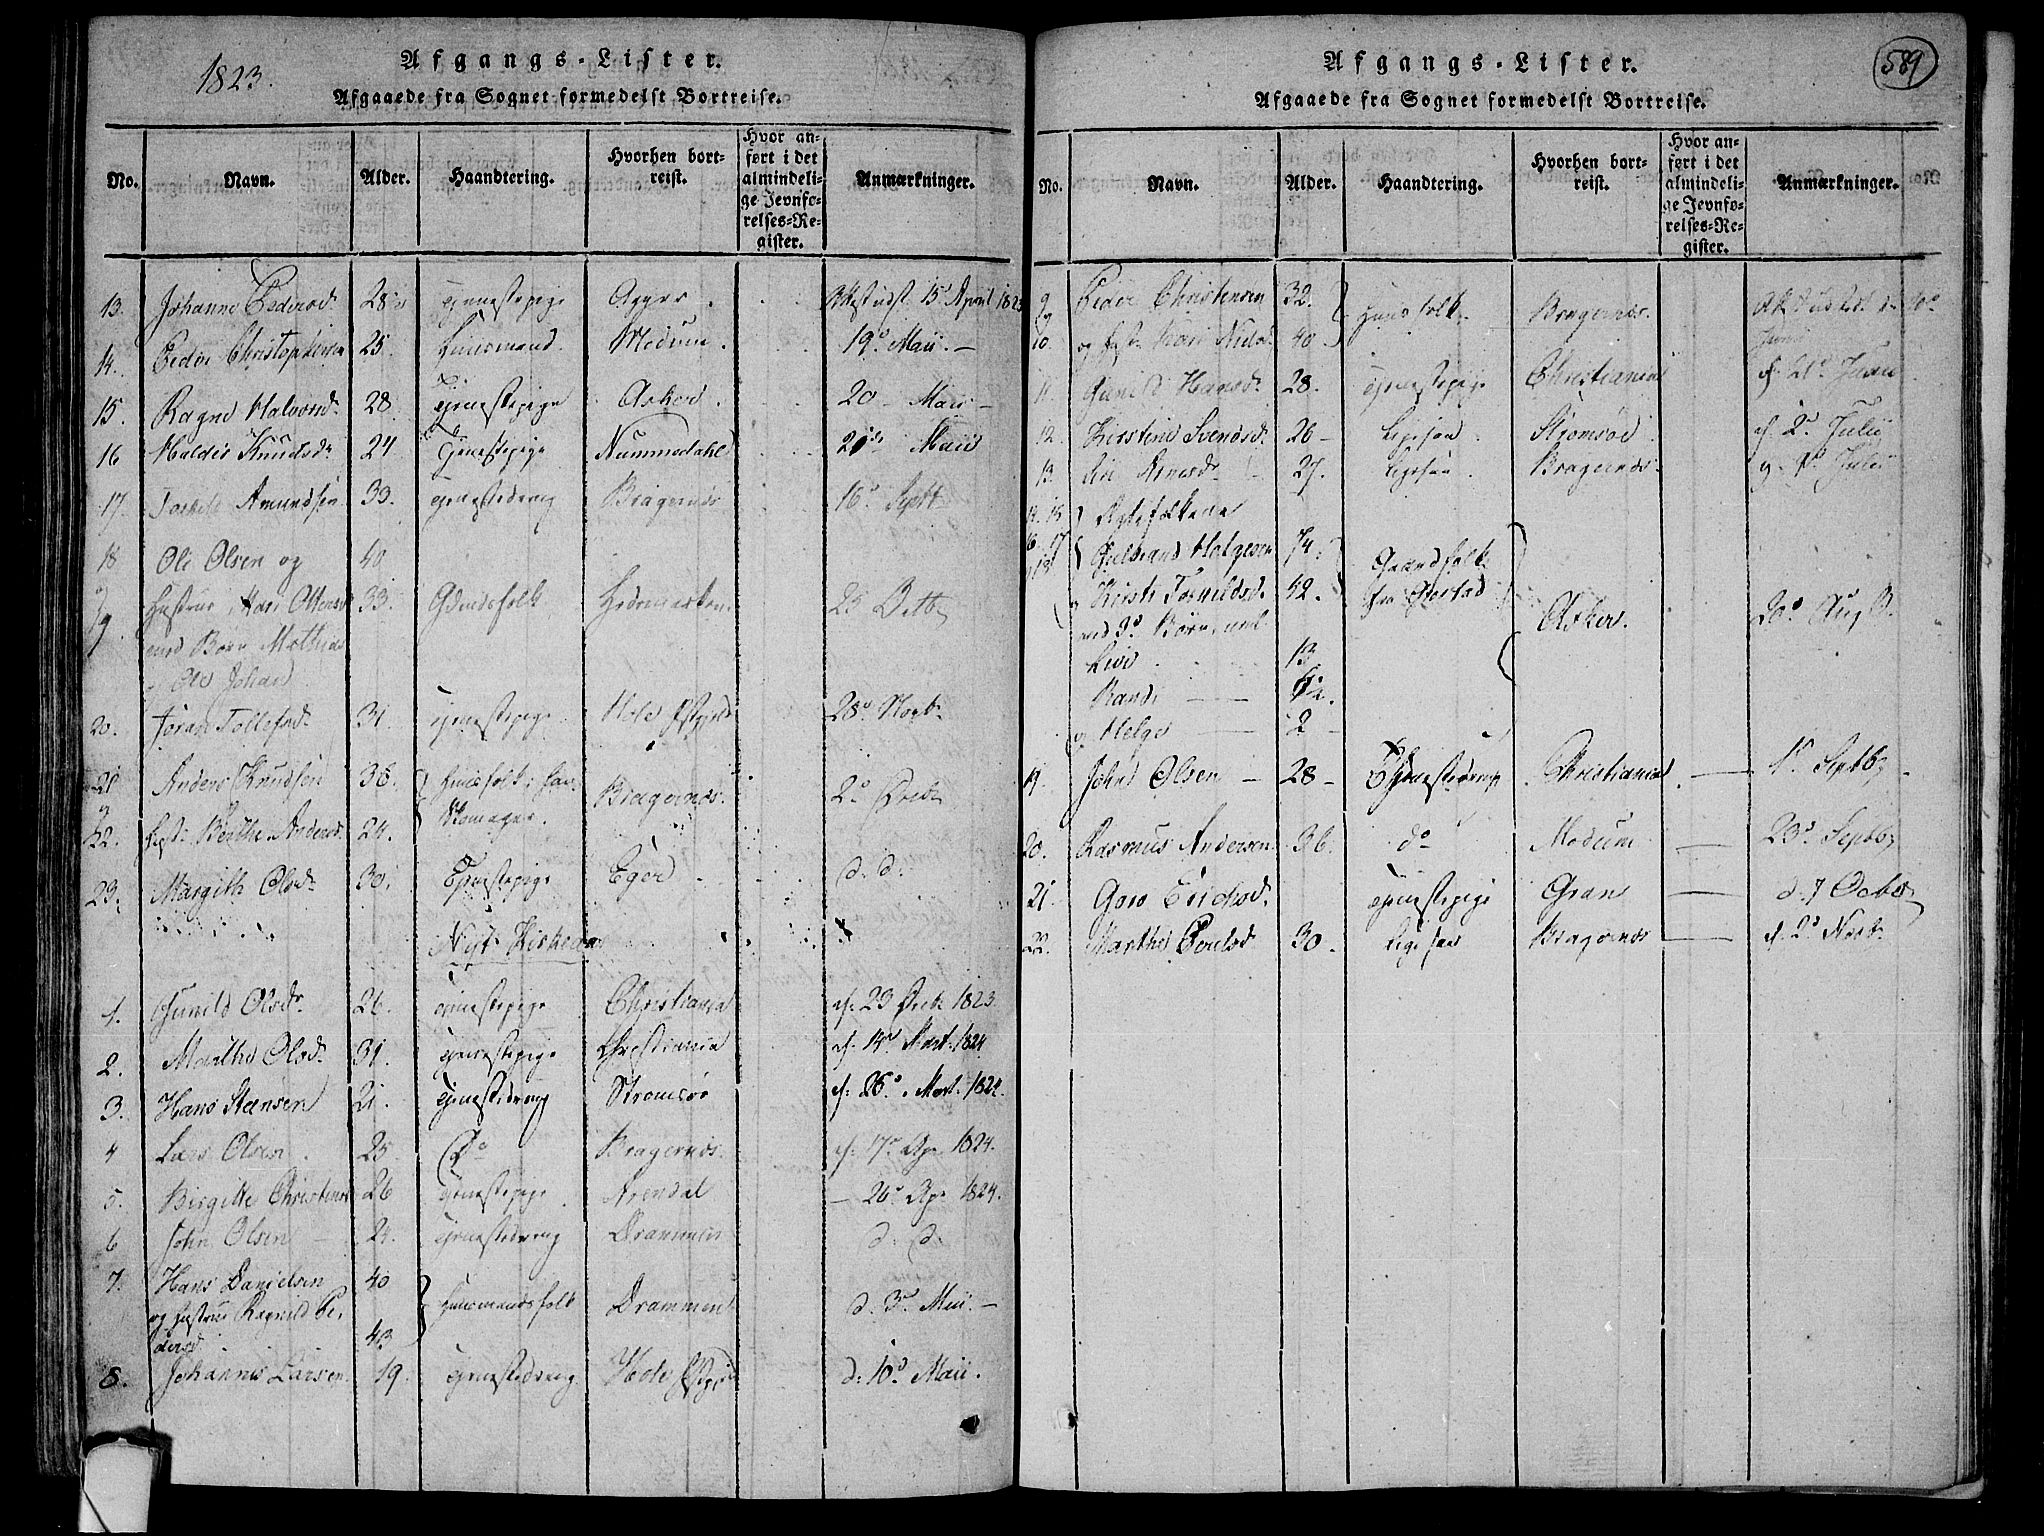 1823.
Afgangs-Lister.
Afgaaede fra Sognet formedelst Bortreise.
No. Navn. Alder. Haandtering. Hvorhen bortreist. Hvor anført i det almindelige Jevnførelses-Register. Anmærkninger.
13. Johanne Pedersd. 28 tjenestepige Agger. Attest udst. 15 April 1823
14. Peder Christophersen 25. Huusmand. Modum. 19d Maii. —
15. Ragne Halvorsd. 28. tjenestepige Asker. 20 — Maii —
16 Haldis Knudsd. 24. Tjenestepige Nummedahl 21d Maii
17. Amundsen 33. tjenestedreng Bragernæs 16d Sept
18 Ole Olsen og 40
og 19. Hustrue Kari 33. Gaardfolk Hedemarken 25 Octb
med Børn Mathias
og Ole Johan
20. Joran Tollefsd. 31. tjenestepige Hole Pstgjeld 28d Novb.
21 Anders Knudsen 36. Huusfolk Bragernæs. 2d Decb.
og 22. Hust. Berthe Andersd. 24. Skomager.
23. Margith Olsd. 30. Tjenestepige Eger d. d.
Nyt Kirkeaar
1. Gunild Olsd. 26. tjenestepige Christiania af 23 Decb. 1823.
2. Marthe Olsd. 31. tjenestepige Christiania af 14d Mart. 1824
3. Hans Steensen 21. tjenestedreng Strømsøe af 26d Mart. 1824.
4 Lars Olsen. 25. Do Bragernæs. af 17d Apr. 1824.
5. Birgitte Christensd 26 tjenestepige Arendal — 26d Apr 1824.
6 John Olsen — 24. tjenestedreng Drammen d. d.
7. Hans Danielsen 40
og Hustrue Ragnild Pe- Huusmandsfolk Drammen d. 3d Maii. —
dersd. 43
8. Johannes Larsen 19. tjenestedreng Hole Pstgj. d. 10d Maii.
589
Afgangs-Lister.
Afgaaede fra Sognet formedelst Bortreise.
No. Navn. Alder. Haandtering. Hvorhen bortreist. Hvor anført i det almindelige Jevnførelses-Register. Anmærkninger.
9 og Peder Christensen 32. Huusfolk. Bragernæs. Junii
10. og Hust. Kari Nielsd. 40.
11. Hansd. 28. tjenestepige Christiania af 21d Junii
12. Kirstine Svendsd. 26 — Ligesaa. Strømsøe. af 2d Julii
13. Siri 27. Ligesaa. Bragernæs. Julii
14. 15 Ægtefolkene
16 17 Gulbrand Helgesen 74. Gaardfolk
og 18 og Kirsti Torkildsd. 42. fra
med 3d Børn, nul. Asker. 20d Aug
Live. 13
Randi — 
og Helge — 2
19. John Olsen — 28 — Tjenestedreng Christiania — 1d Septb —
20. Rasmus Andersen 36. do Modum — 23d Septb
21. Goro Erichsd. tjenestepige Gran — d. 7 Octob
22. Marthe Poulsd. 30. Ligesaa Bragernæs — af 2d Novb.